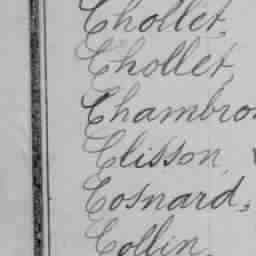 Chollet,
Chollet,
Chambro
Clisson,
Cosnard,
Collin,